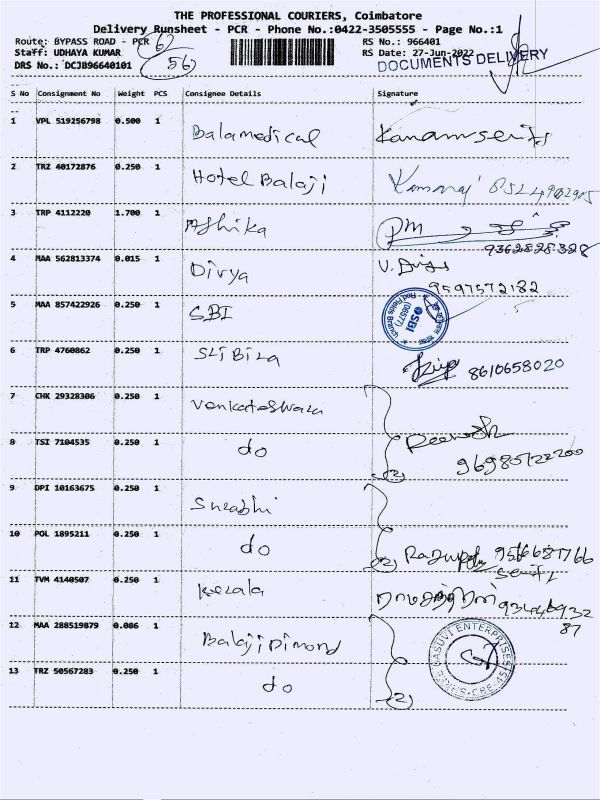 THE PROFESSIONAL COURIERS, Coimbatore
Delivery Runsheet - PCR - Phone No.:0422-3505555 - Page No.:1
Route: BYPASS ROAD - PCR 62 RS No.: 966401
Staff: UDHAYA KUMAR RS Date: 27-Jun-2022
DRS No.: DCJ896640101 56 DOCUMENTS DELIVERY
S No Consignment No Weight PCS Consignee Details Signature
1 VPL 519256798 0.500 1 Balamedical
2 TRZ 40172876 0.250 1 Hotel Balaji Kamaraj
3 TRP 4112220 1.700 1 Ashika PM
9362828328
4 MAA 562813374 0.015 1 Divya
9597572182
5 MAA 857422926 0.250 1 SBI SBI
6 TRP 4760862 0.250 1 8610658020
7 CHK 29328306 0.250 1 Venkateswara
8 TSI 7104535 0.250 1 do (2)
9 DPI 10163675 0.250 1 Surabhi
10 POL 1895211 0.250 1 do (2)
11 TVM 4140507 0.250 1 Kerala
87
12 MAA 288519879 0.086 1 Balaji Dimond
13 TRZ 50567283 0.250 1 do (2)